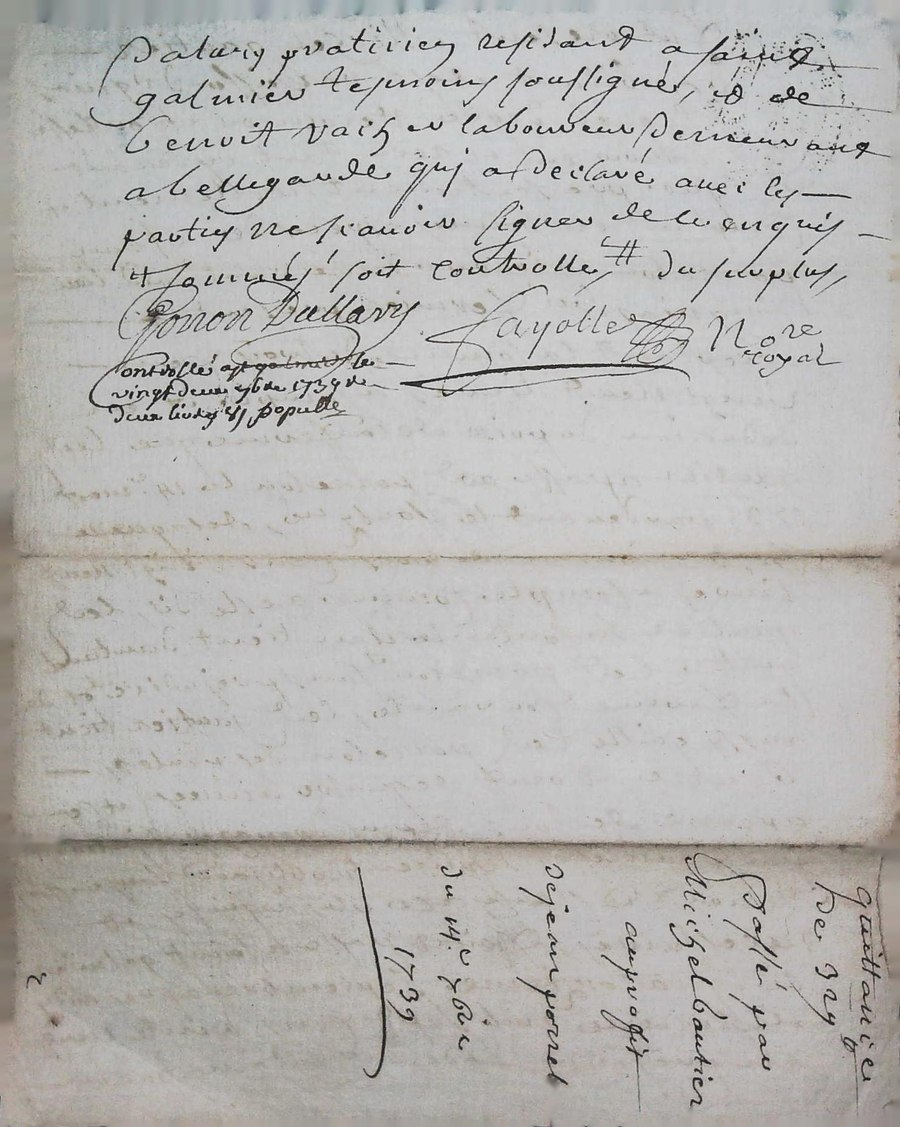 Dalary pratitien residant a saint
galmier tesmoins soussigné, & de
benoit vacher laboureur demeurant
a bellegarde qui a declaré avec les
parties ne scavoir signer de ce enquis
& sommés soit controllé, du surplus,
Dallary
fayolle Nore
royal
Controllé a st galmier le
vingt deux 7bre 1739 R
deux livres 8s
quittance
De 32#
Passé par
Michel bautier
au proffit
de jean
du 14e 7bre
1739